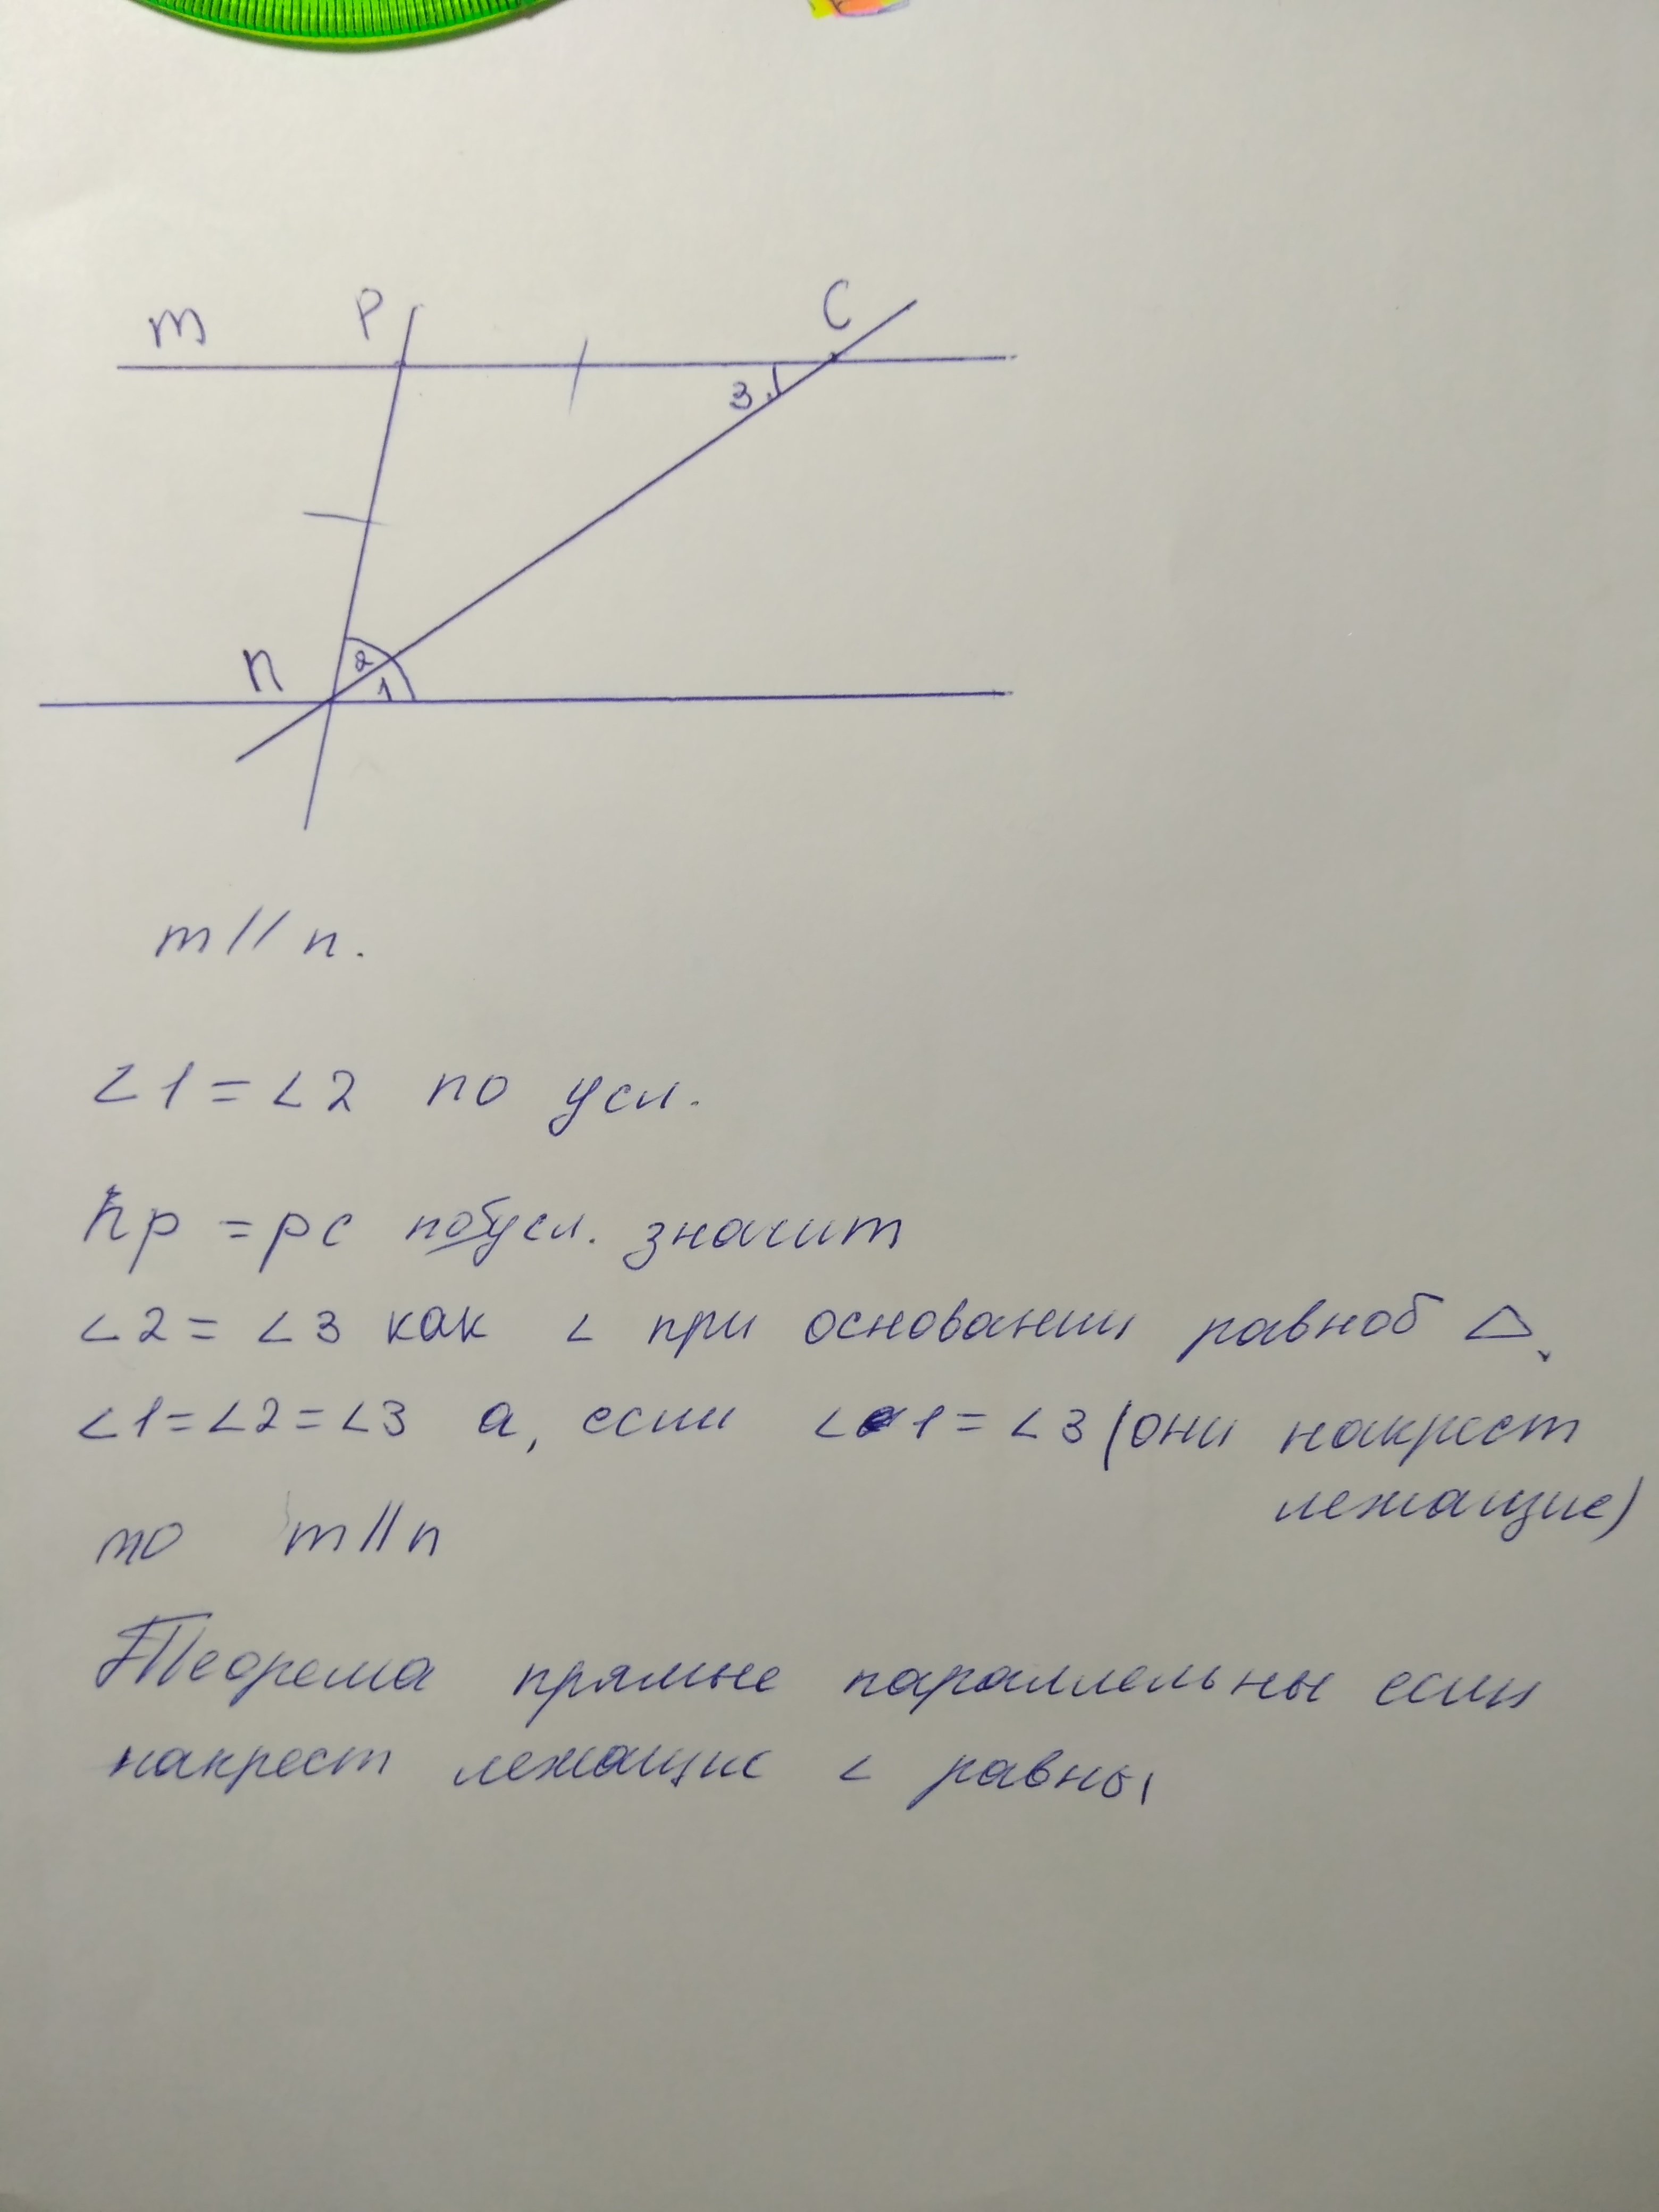 m P C
3
n 2
1
m // n.
∠1 = ∠2 по усл.
np = pc по усл. значит
∠2 = ∠3 как ∠ при основании равноб △.
∠1 = ∠2 = ∠3 а, если ∠1 = ∠3 (они накрест
лежащие)
то m || n
Теорема прямые параллельны если
накрест лежащие ∠ равны